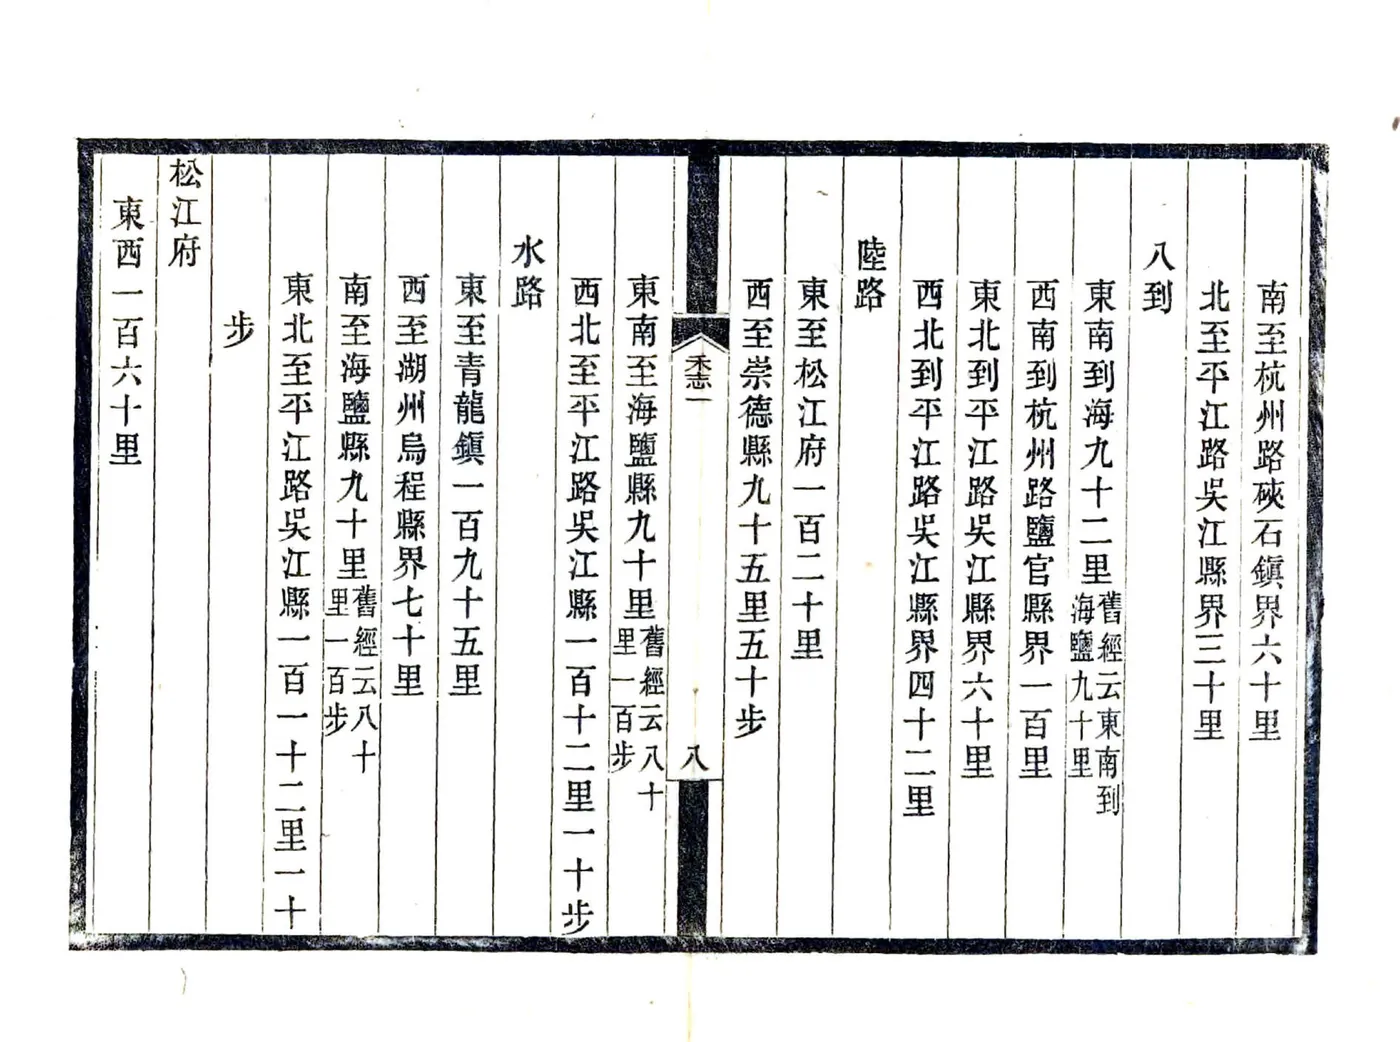 南至杭州路硤石鎭界六十里
北至平江路吳江縣界三十里
八到
東南到海九十二里舊經云東南到海鹽九十里
西南到杭州路鹽官縣界一百里
東北到平江路吳江縣界六十里
西北到平江路吳江縣界四十二里
陸路
東至松江府一百二十里
西至崇德縣九十五里五十步
禾志一
八
東南至海鹽縣九十里舊經云八十里一百步
西北至平江路吳江縣一百十二里一十步
水路
東至青龍鎭一百九十五里
西至湖州烏程縣界七十里
南至海鹽縣九十里舊經云八十里一百步
東北至平江路吳江縣一百一十二里一十
步
松江府
東西一百六十里